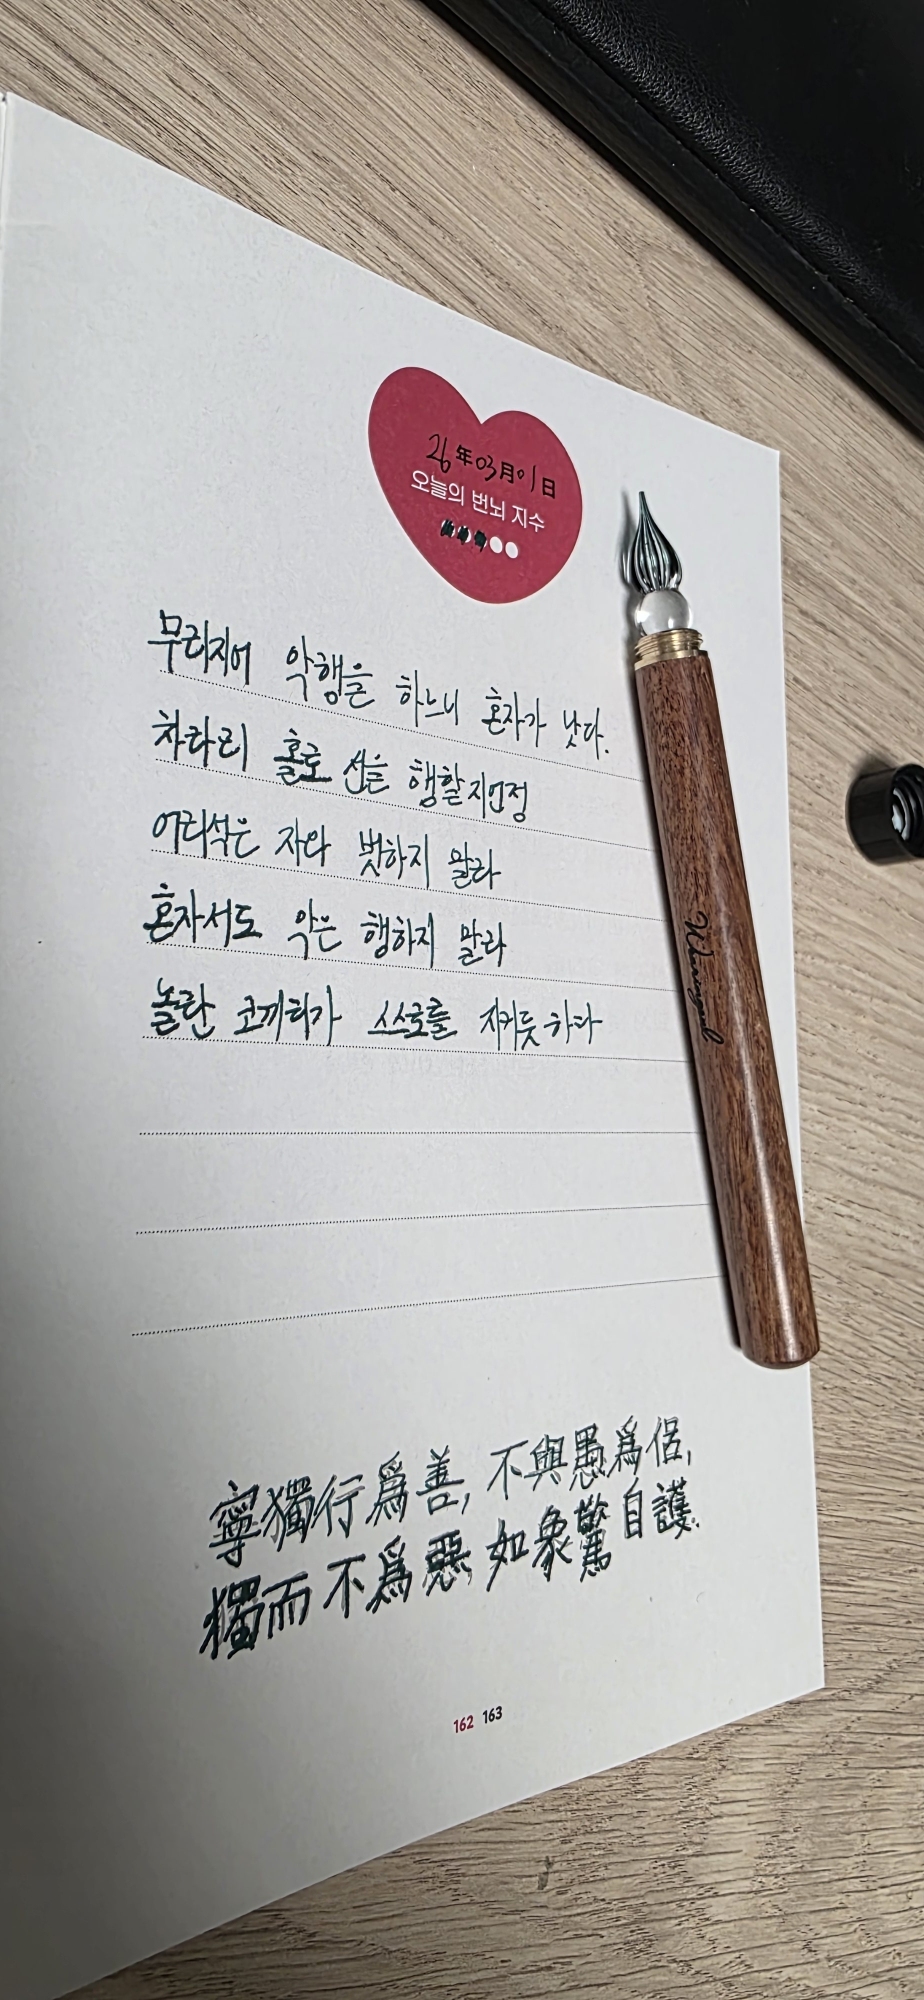 26年03月01日
오늘의 번뇌 지수
무리지어 악행을 하느니 혼자가 낫다.
차라리 홀로 선을 행할지언정
어리석은 자와 벗하지 말라
혼자서도 악은 행하지 말라
놀란 코끼리가 스스로를 지키듯 하라
寧獨行爲善, 不與愚爲侶,
獨而不爲惡, 如象驚自護.
162 163